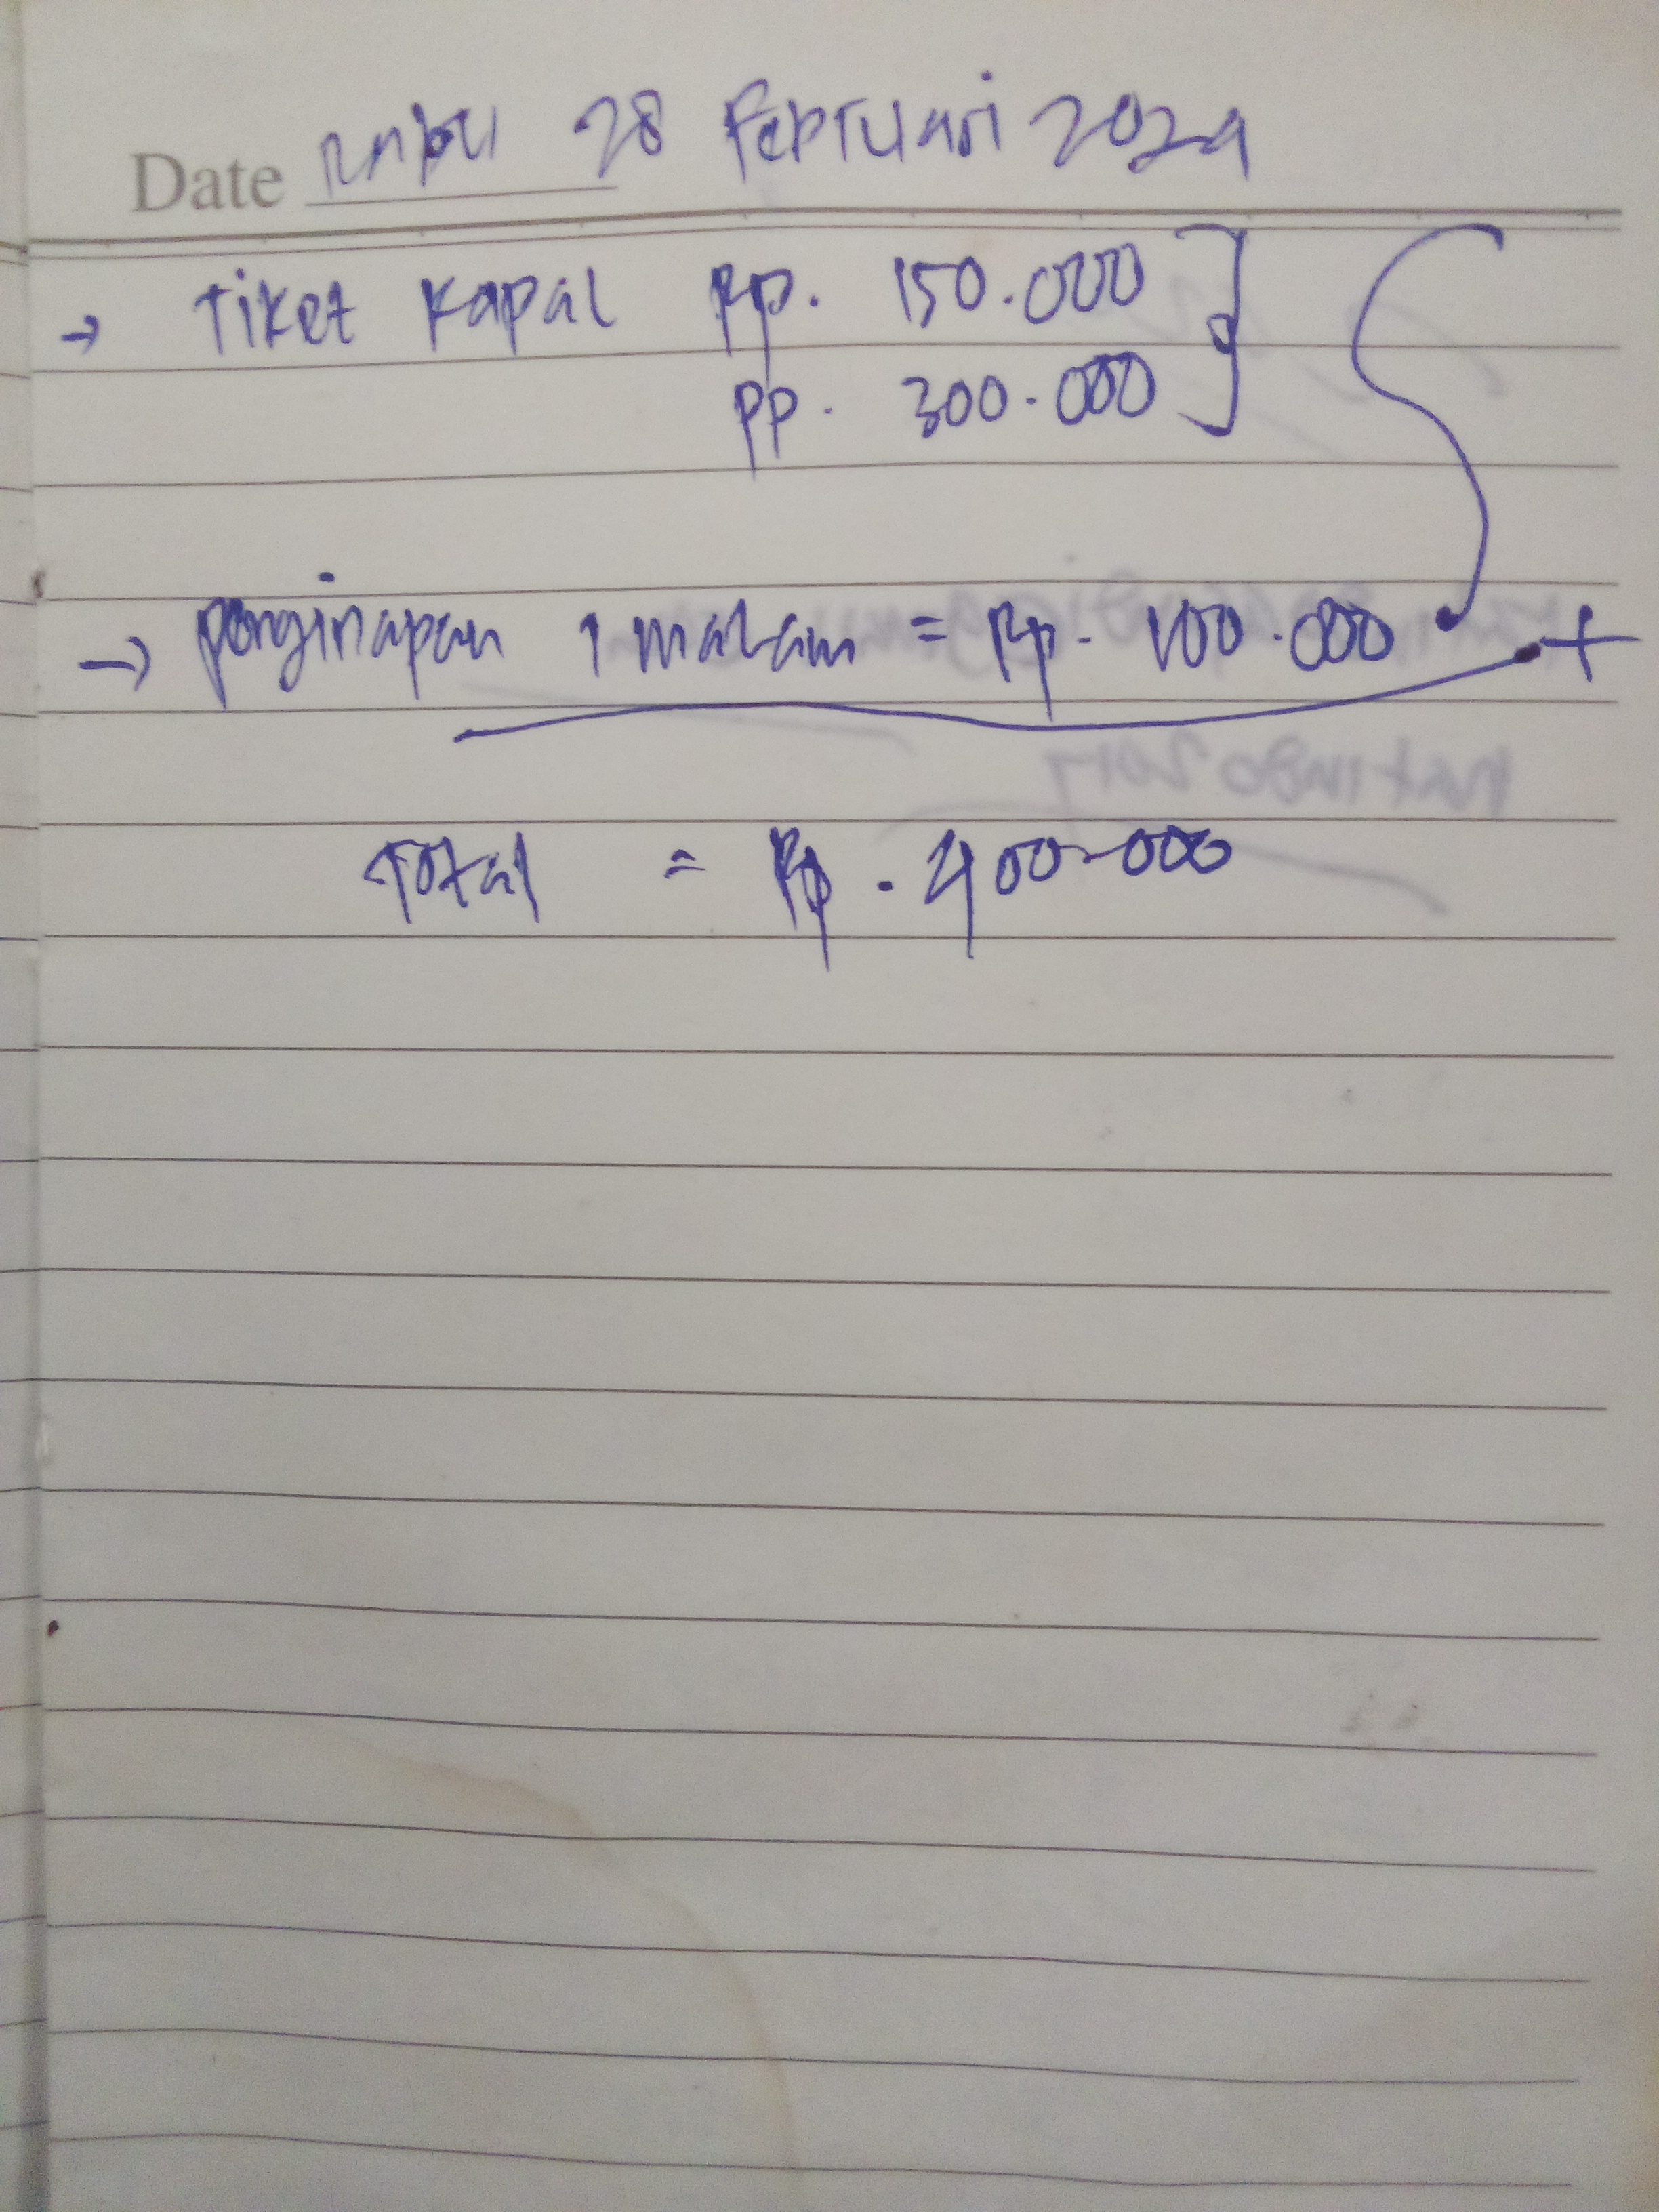 Date Rabu 28 Februari 2024
→ Tiket Kapal Rp. 150.000
PP. 300.000
→ penginapan 1 malam = Rp. 100.000 +
Total = Rp. 400.000